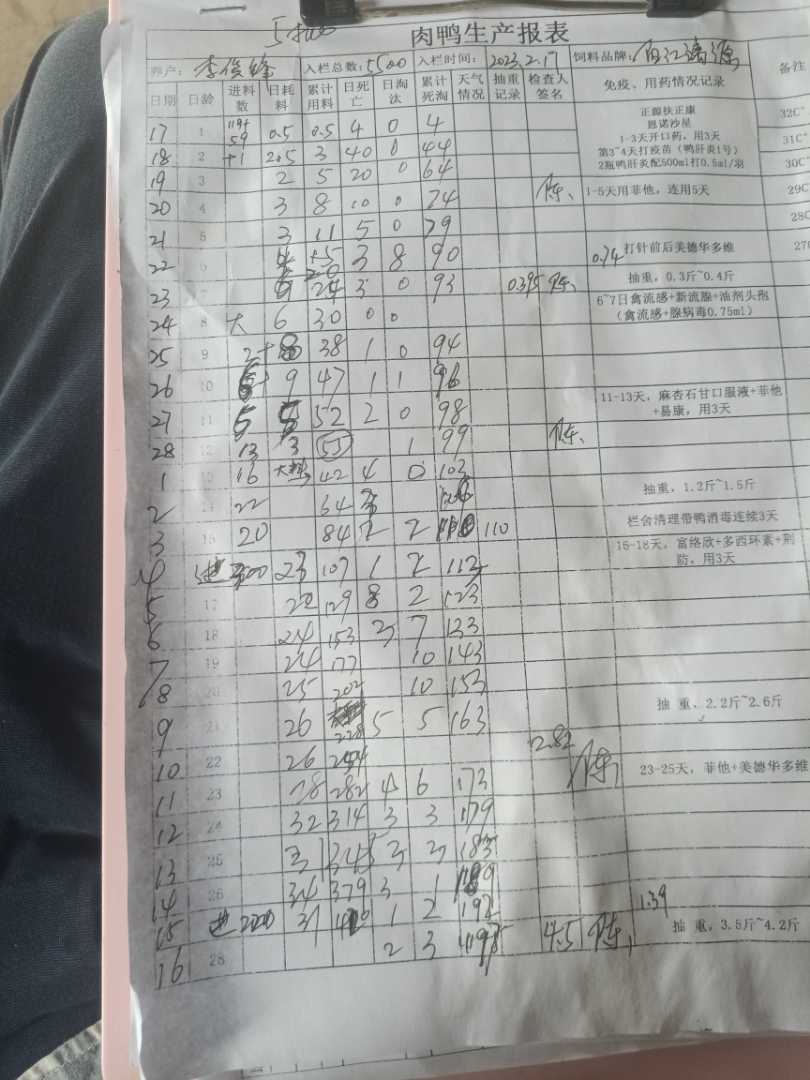 肉鸭生产报表
养户：李俊峰 入栏总数：5500 入栏时间：2023.2.17 饲料品牌：
日期 日龄 进料数 日耗料 累计用料 日死亡 日淘汰 累计死淘 天气情况 抽重记录 检查人签名 免疫、用药情况记录 备注
17 1 0.5 0.5 4 0 4 正源扶正康 32C°
恩诺沙星
1-3天开口药，用3天
18 2 +1 2.5 3 40 0 44 第3~4天打疫苗（鸭肝炎1号） 31C°
2瓶鸭肝炎配500ml打0.5ml/羽
19 3 2 5 20 0 64 30C°
20 4 3 8 10 0 74 陈 1-5天用菲他，连用5天 29C
21 5 3 11 5 0 79 28C
22 6 3 8 90 0.74 打针前后美德华多维 27C
23 7 24 3 0 93 0.395 陈 抽重，0.3斤~0.4斤
24 8 大 6 30 0 0 6~7日禽流感+新流腺+油剂头孢
（禽流感+腺病毒0.75ml）
25 9 2+ 8 38 1 0 94
26 10 9 47 1 1 96
27 11 5 5 52 2 0 98 11-13天，麻杏石甘口服液+菲他
+易康，用3天
28 12 13 3 55 1 99 陈
1 13 16 大料 42 4 0 103
2 14 22 64 抽重，1.2斤~1.5斤
3 15 20 84 2 2 110 栏舍清理带鸭消毒连续3天
4 进 23 107 1 2 113 15-18天，富络欣+多西环素+荆
防，用3天
5 17 22 129 8 2 123
6 18 24 153 3 7 133
7 19 24 177 10 143
8 20 25 202 10 153
9 21 26 228 5 5 163 抽 重，2.2斤~2.6斤
10 22 26 254 2.82
陈
11 23 28 282 4 6 173 23-25天，菲他+美德华多维
12 24 32 314 3 3 179
13 25 31 345 3 3 185
14 26 34 379 3 1 189
15 进 31 1 2 192 1.39
16 28 2 3 4.5 陈 抽 重，3.5斤~4.2斤